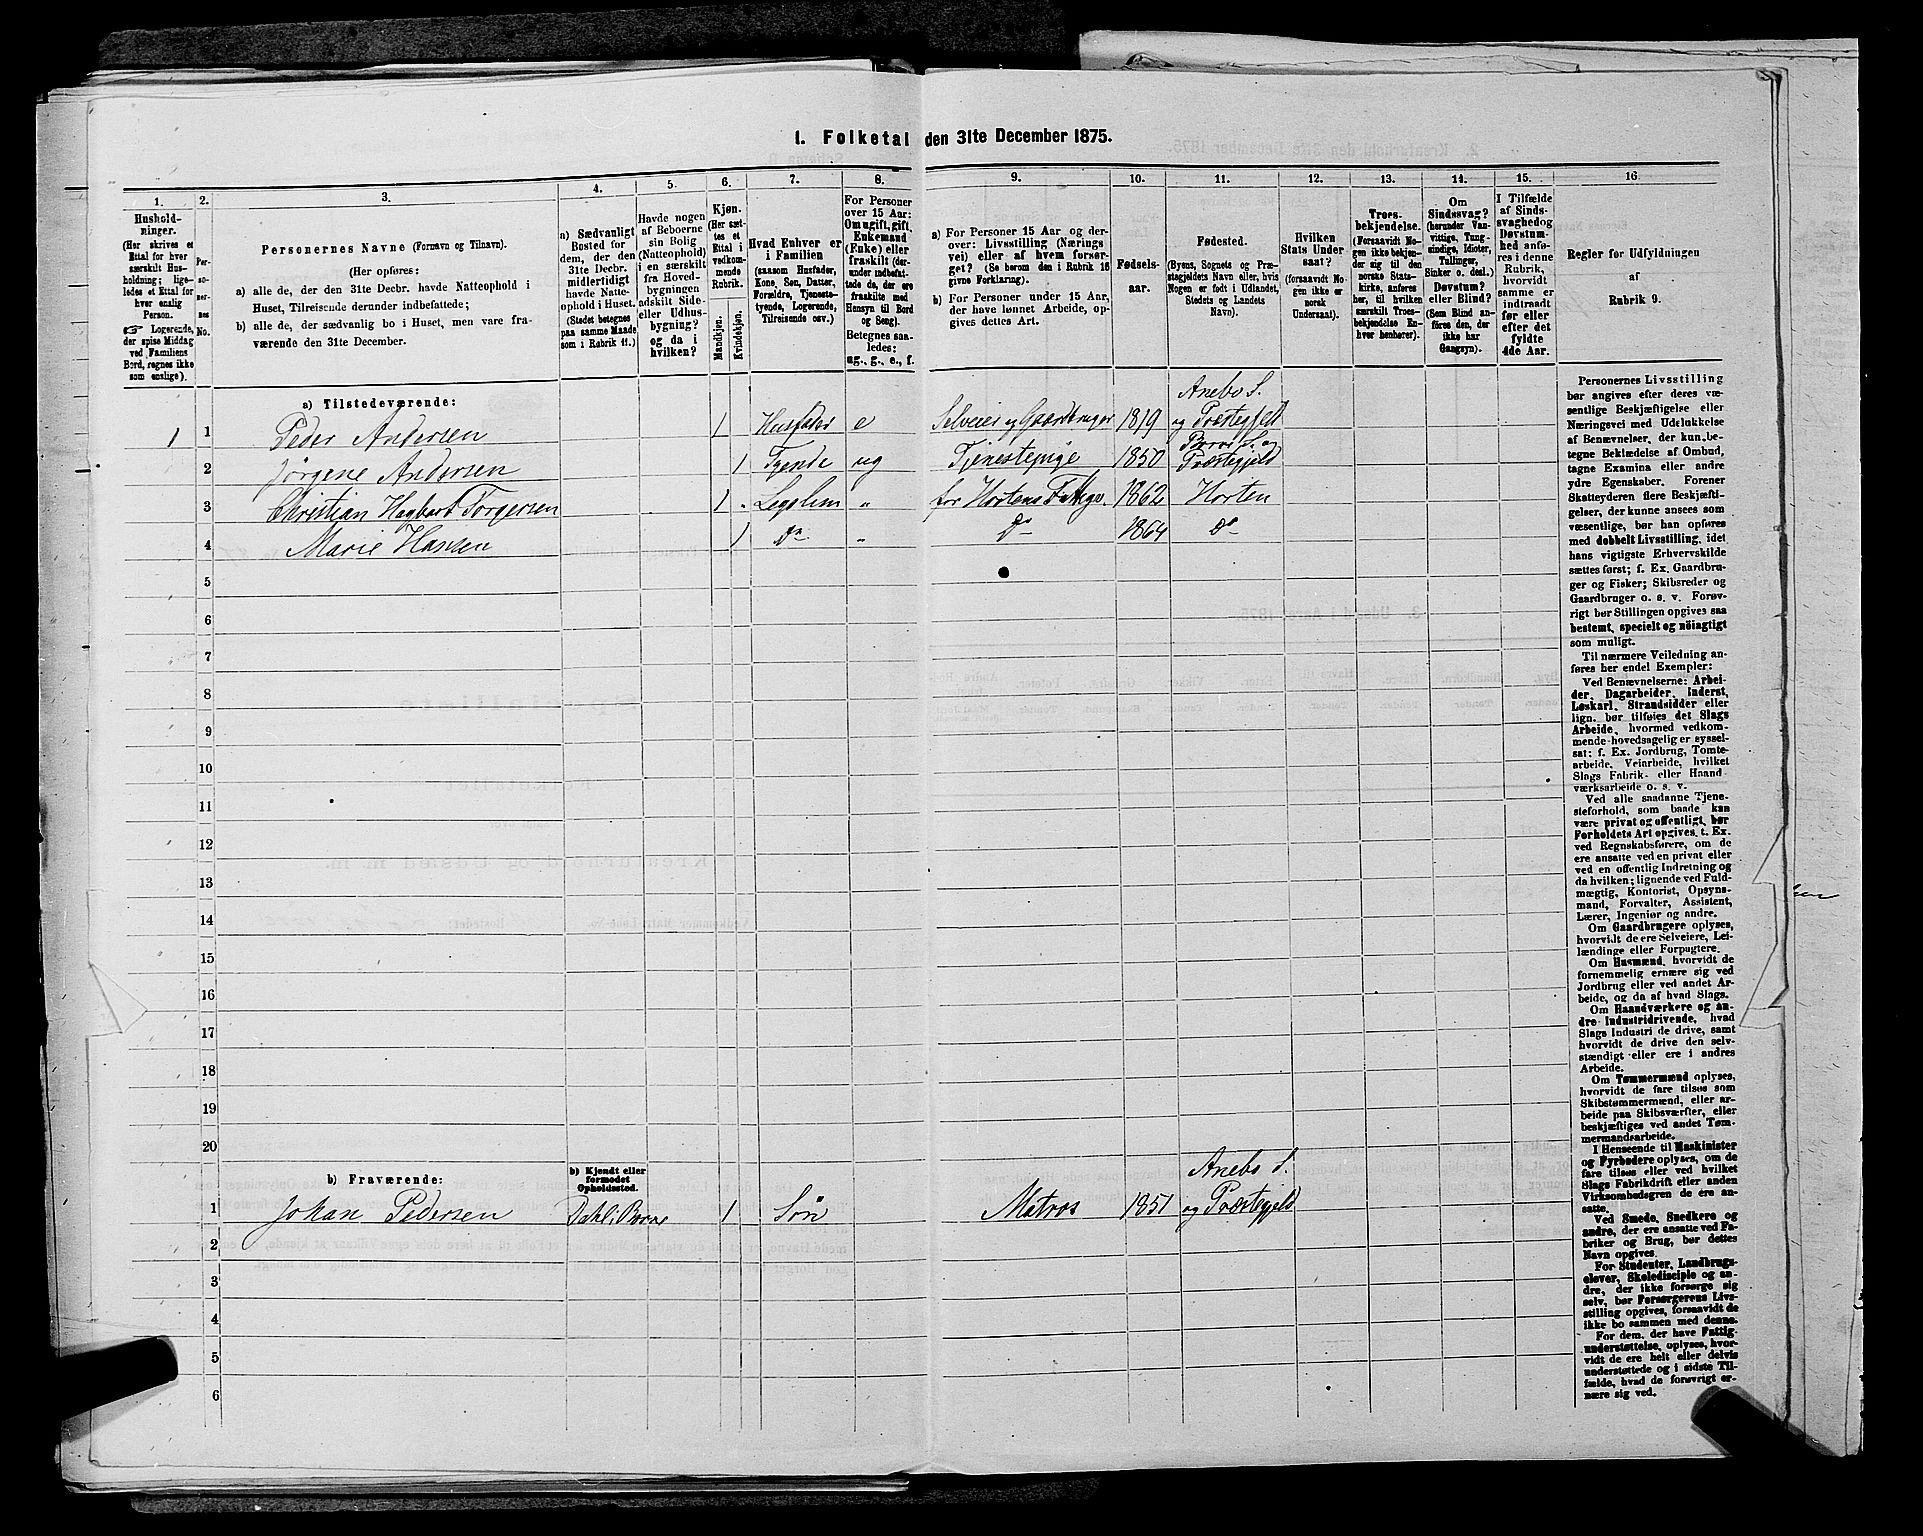 1. Folketal den 31te December 1875.
1.
2.
3.
4.
5.
6.
7.
8.
9.
10.
11.
12.
13.
14.
15.
16
Hushold-
ninger.
(Her skrives et
Ettal for hver
særskilt Hus-
holdning; lige-
ledes et Ettal for
hver enslig
Person.
☞ Logerende,
der spise Middag
ved Familiens
Bord, regnes ikke
som enslige).
Per-
so-
ner-
nes
No.
Personernes Navne (Fornavn og Tilnavn).
(Her opføres:
a) alle de, der den 31te Decbr. havde Natteophold i
Huset, Tilreisende derunder indbefattede;
b) alle de, der sædvanlig bo i Huset, men vare fra-
værende den 31te December.
a) Sædvanligt
Bosted for
dem, der den
31te Decbr.
midlertidigt
havde Natte-
ophold i Huset.
(Stedet betegnes
paa samme Maade
som i Rubrik 11.)
Havde nogen
af Beboerne
sin Bolig
(Natteophold)
i en særskilt
fra Hoved-
bygningen
adskilt Side-
eller Udhus-
bygning?
og da i
hvilken?
Kjøn.
(Her sæt-
tes et
Ettal i
vedkom-
mende
Rubrik.
Mandkjøn.
Kvindekjøn.
Hvad Enhver er
i Familien
(saasom Husfader,
Kone, Søn, Datter,
Forældre, Tjeneste-
tyende, Logerende,
Tilreisende osv.)
For Personer
over 15 Aar:
Om ugift, gift,
Enkemand
(Enke) eller
fraskilt (der-
under indbefat-
tede de, der ere
fraskilte med
Hensyn til Bord
og Seng).
Betegnes saa-
ledes:
ug., g., e., f.
a) For Personer 15 Aar og der-
over: Livsstilling (Nærings
vei) eller af hvem forsør-
get? (Se herom den i Rubrik 16
givne Forklaring).
b) For Personer under 15 Aar,
der have lønnet Arbeide, op-
gives dettes Art.
Fødsels-
aar.
Fødested.
(Byens, Sognets og Præ-
stegjeldets Navn eller, hvis
Nogen er født i Udlandet,
Stedets og Landets
Navn).
Hvilken
Stats Under
saat?
(forsaavidt No-
gen ikke er
norsk
Undersaat).
Troes-
bekjendelse.
(Forsaavidt No-
gen ikke bekjen-
der sig til den
norske Stats-
kirke, anføres
her, til hvilken
særskilt Troes-
bekjendelse En-
hver henhører).
Om
Sindssvag?
(herunder Van-
vittige, Tung-
sindige, Idioter,
Tullinger,
Sinker o. desl.)
Døvstum?
eller Blind?
(Som Blind an-
føres den, der
ikke har
Gangsyn).
I Tilfælde
af Sinds-
svaghed og
Døvstum-
hed anfø-
res i denne
Rubrik,
hvorvidt
samme er
indtraadt
før eller
efter det
fyldte
4de Aar.
Regler for Udfyldningen
af
Rubrik 9.
a) Tilstedeværende:
1 1 Peder Andersen 1 Husfader e Selveier og Gaardbruger 1819 Anebo S. og Præstegjeld
2 Jørgene Andersen 1 Tyende ug Tjenestepige 1850 Borre S. og Præstegjeld
3 Christian Hagbart Torgersen 1 Legslem " for Hortens Fattigv. 1862 Horten
4 Marie Hansen 1 Do " Do 1864 Do
5
6
7
8
9
10
11
12
13
14
15
16
17
18
19
20
b) Fraværende:
b) Kjendt eller
formodet
Opholdssted.
1 Johan Pedersen Dahl i Borre 1 Søn Matros 1851 Anebo S. og Præstegjeld
2
3
4
5
6
Personernes Livsstilling
bør angives efter deres væ-
sentlige Beskjæftigelse eller
Næringsvei med Udelukkelse
af Benævnelser, der kun be-
tegne Beklædelse af Ombud,
tagne Examina eller andre
ydre Egenskaber. Forener
Skatteyderen flere Beskjæfti-
gelser, der kunne ansees som
væsentlige, bør han opføres
med dobbelt Livsstilling, idet
hans vigtigste Erhvervskilde
sættes først; f. Ex. Gaardbru-
ger og Fisker; Skibsreder og
Gaardbruger o. s. v. Forøv-
rigt bør Stillingen opgives saa
bestemt, specielt og nöiagtigt
som muligt.
Til nærmere Veiledning an-
føres her endel Exempler:
Ved Benævnelserne: Arbei-
der, Dagarbeider, Inderst,
Løskarl, Strandsidder eller
lign. bør tilføies det Slags
Arbeide, hvormed vedkom-
mende hovedsagelig er syssel-
sat: f. Ex. Jordbrug, Tomte-
arbeide, Veiarbeide, hvilket
Slags Fabrik- eller Haand
værksarbeide o. s. v.
Ved alle saadanne Tjene-
steforhold, som baade kan
være privat og offentligt, bør
Forholdets Art opgives, t. Ex.
ved Regnskabsførere, om de
ere ansatte ved en privat eller
ved en offentlig Indretning og
da hvilken; lignende ved Fuld-
mægtig, Kontorist, Opsyns-
mand, Forvalter, Assistent,
Lærer, Ingeniør og andre.
Om Gaardbrugere oplyses,
hvorvidt de ere Selveiere, Lei-
lændinge eller Forpagtere.
Om Husmænd, hvorvidt de
fornemmelig ernære sig ved
Jordbrug eller ved andet Ar-
beide, og da af hvad Slags.
Om Haandværkere og an-
dre Industridrivende, hvad
Slags Industri de drive, samt
hvorvidt de drive den selv-
stændigt eller ere i andres
Arbeide.
Om Tømmermænd oplyses,
hvorvidt de fare tilsøs som
Skibstømmermænd, eller ar-
beide paa Skibsværfter, eller
beskjæftiges ved andet Tøm-
mermandsarbeide.
I Henseende til Maskinister
og Fyrbødere oplyses, om de
fare tilsøs eller ved hvilket
Slags Fabrikdrift eller anden
Virksomhedsgren de ere an-
satte.
Ved Smede, Snedkere og
andre, der ere ansatte ved Fa-
briker og Brug, bør dettes
Navn opgives.
For Studenter, Landbrugs-
elever, Skoledisciple og an-
dre, der ikke forsørge sig
selv, bør Forsørgerens Livs-
stilling opgives, forsaavidt de
ikke bo sammen med denne.
For dem, der have Fattig-
understøttelse, oplyses, hvor-
vidt de ere helt eller delvis
understøttede og i sidste Til-
fælde, hvad de forøvrigt er-
nære sig ved.